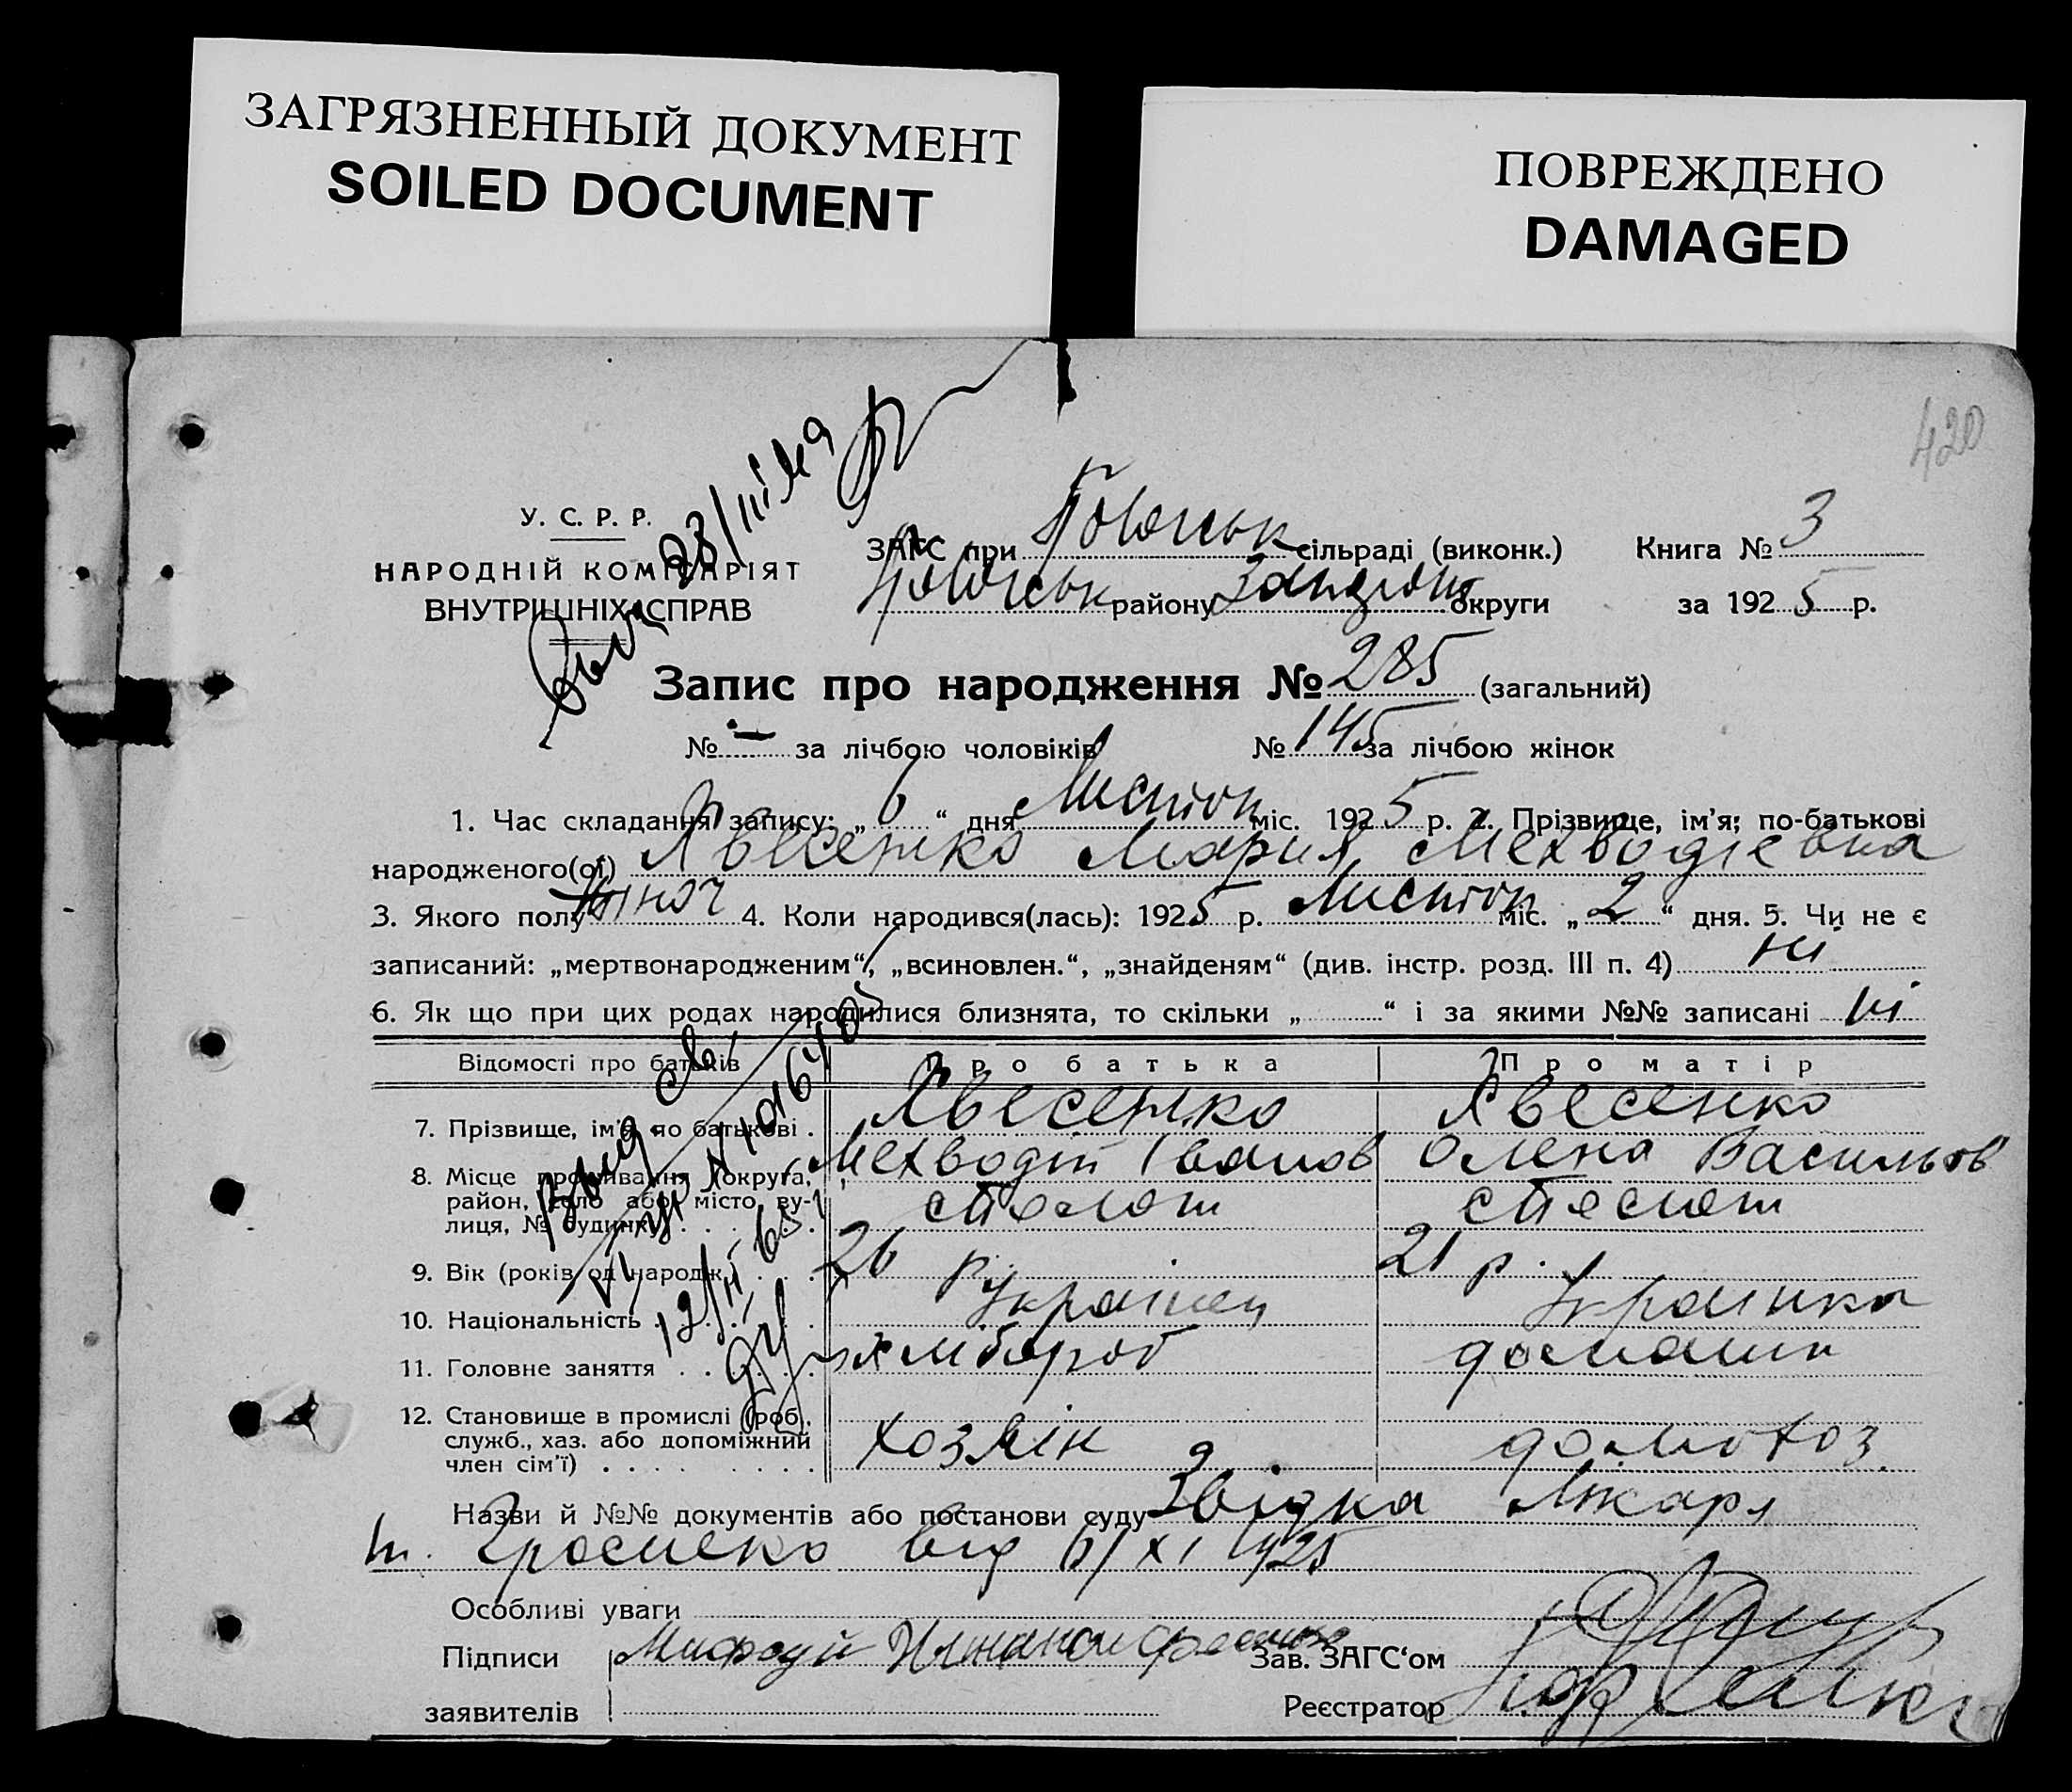 ЗАГРЯЗНЕННЫЙ ДОКУМЕНТ
SOILED DOCUMENT
ПОВРЕЖДЕНО
DAMAGED
420
У. С. Р. Р.
НАРОДНІЙ КОМІСАРІЯТ
ВНУТРІШНІХ СПРАВ
ЗАГС при сільраді (виконк.) Книга № 3
району округи за 1925 р.
Запис про народження № 285 (загальний)
№ - за лічбою чоловіків № 145 за лічбою жінок
1. Час складання запису: „ 6 “ дня Листоп міс. 1925 р. 2. Прізвище, ім’я, по-батькові
народженого(ої) Явесенко Мария Мехводіевна
3. Якого полу жіноч 4. Коли народився(лась): 1925 р. Листоп міс. „ 2 “ дня. 5. Чи не є
записаний: „мертвонародженим“, „всиновлен.“, „знайденям“ (див. інстр. розд. III п. 4) ні
6. Як що при цих родах народилися близнята, то скільки „ “ і за якими №№ записані ні
Відомості про батьків Про батька Про матір
7. Прізвище, ім’я, по батькові . Явесенко Явесенко
Мехводій Іванов Олена Васильов
8. Місце проживання (округа,
район, село або місто, ву-
лиця, № будинк.)
9. Вік (років од народж.) 26 р 21 р.
10. Національність Українец Українка
11. Головне заняття хлібороб домашн
12. Становище в промислі (роб.,
служб., хаз. або допоміжний
член сім’ї) хозяїн домохоз.
Назви й №№ документів або постанови суду Звідка Лікаря
від 6/XI 1925
Особливі уваги
Підписи Зав. ЗАГС‘ом
заявителів Реєстратор